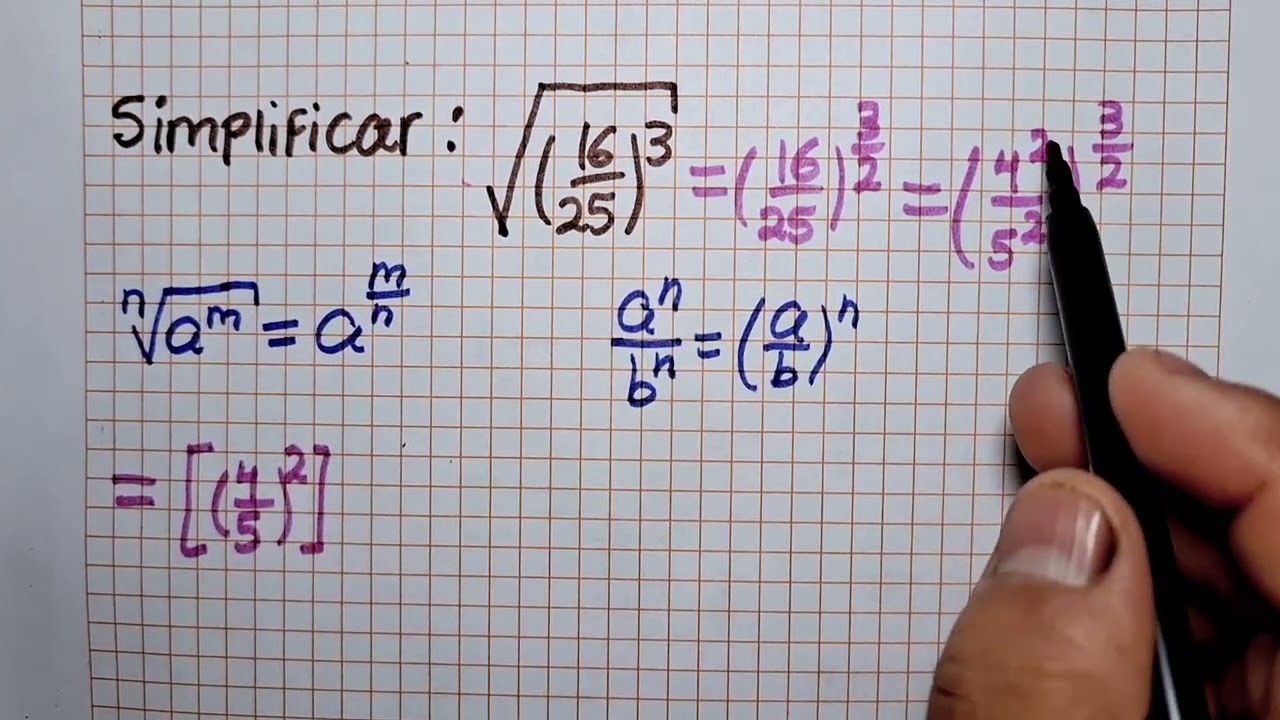 Simplificar: √(16/25)³ = (16/25)^(3/2) = (4²/5²)^(3/2)
ⁿ√a^m = a^(m/n) a^n/b^n = (a/b)^n
= [(4/5)²]